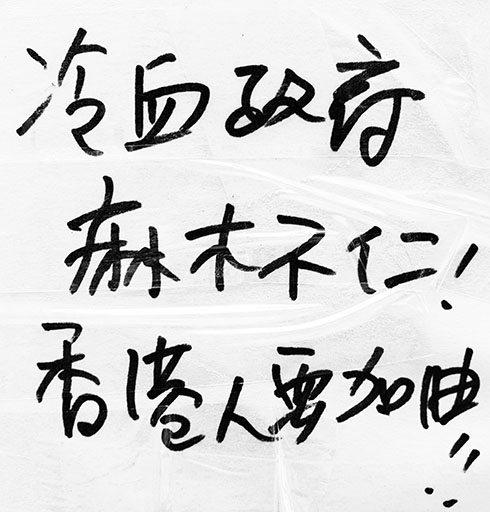 冷血政府
麻木不仁!
香港人要加油!!